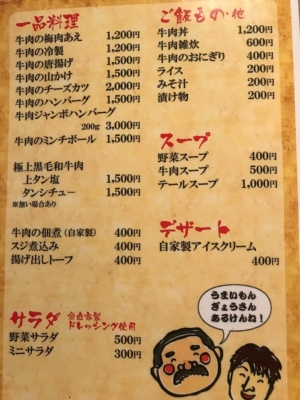 一品料理
牛肉の梅肉あえ 1,200円
牛肉の冷製 1,500円
牛肉の唐揚げ 1,500円
牛肉の山かけ 1,500円
牛肉のチーズカツ 2,000円
牛肉のハンバーグ 1,500円
牛肉ジャンボハンバーグ
200g 3,000円
牛肉のミンチボール 1,500円
極上黒毛和牛肉
上タン塩 1,500円
タンシチュー 1,500円
※無い場合あり
牛肉の佃煮(自家製) 400円
スジ煮込み 400円
揚げ出しトーフ 400円
サラダ
ドレッシング使用
野菜サラダ 500円
ミニサラダ 300円
ご飯もの・他
牛肉丼 1,200円
牛肉雑炊 600円
牛肉のおにぎり 400円
ライス 200円
みそ汁 200円
漬け物 200円
スープ
野菜スープ 400円
牛肉スープ 500円
テールスープ 1,000円
デザート
自家製アイスクリーム
400円
うまいもん
ぎょうさん
あるけんね!